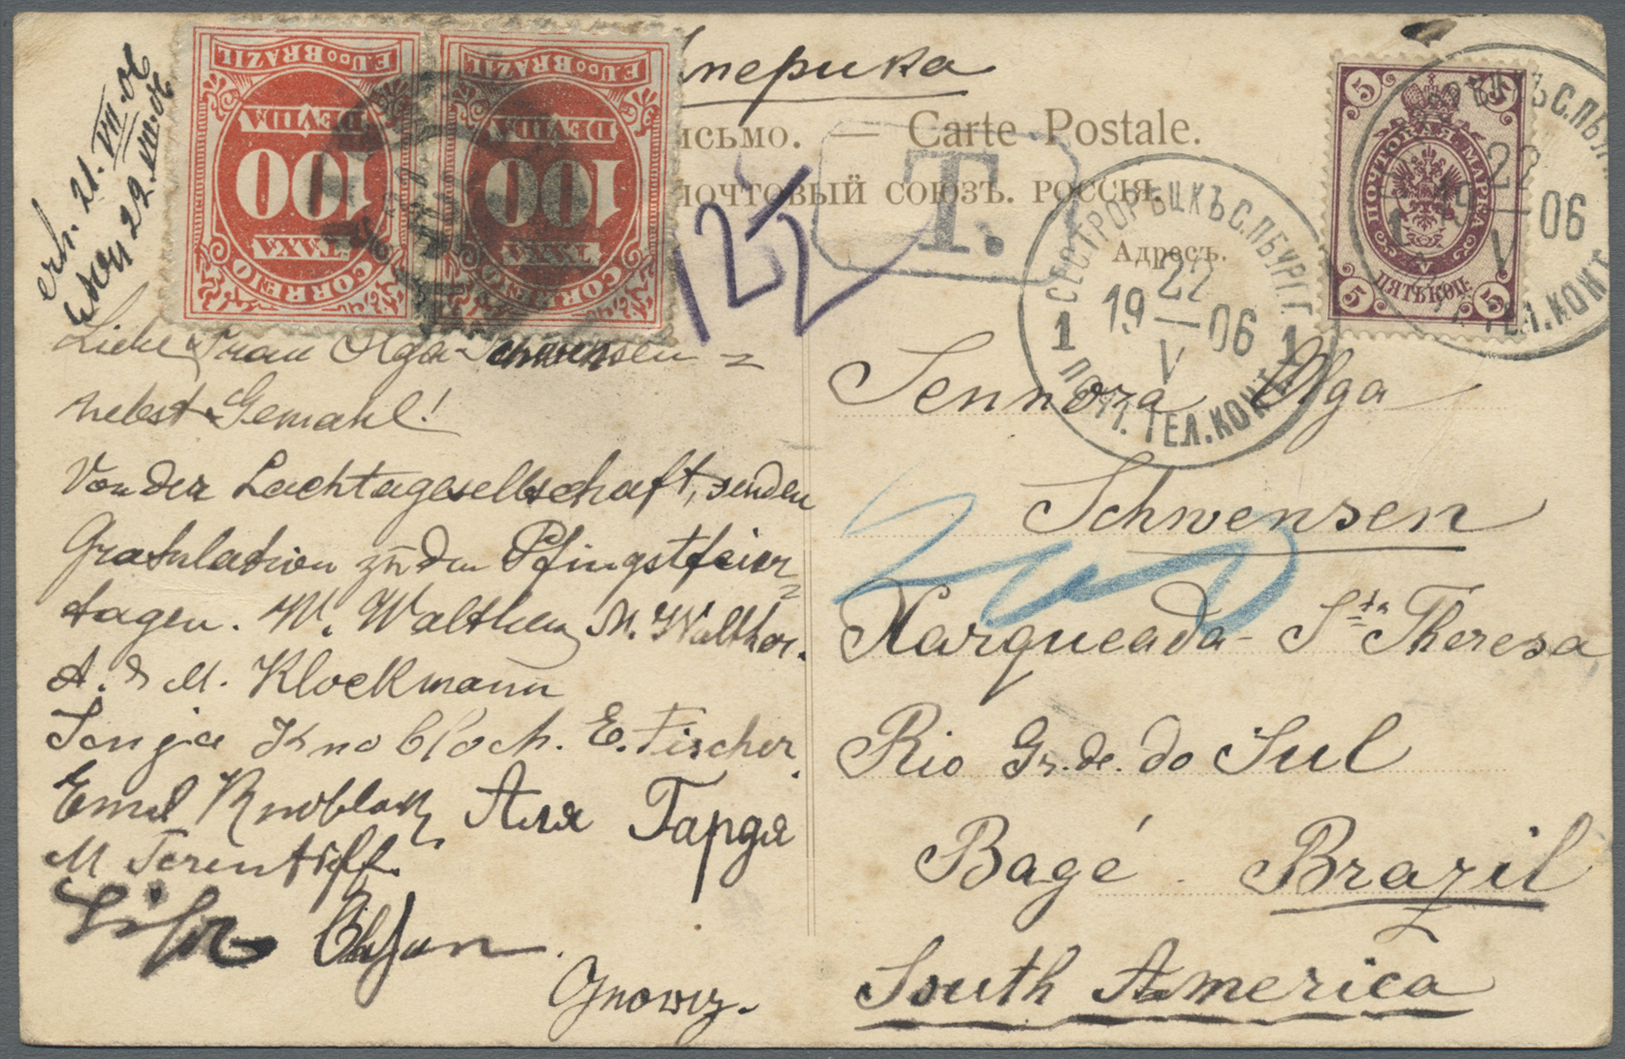 Америка
исьмо. — Carte Postale.
почтовый союзъ. РОССІЯ.
Адресъ.
T.
E.U.DO BRAZIL
DEVIDA
100
TAXA
CORREIO
E.U.DO BRAZIL
DEVIDA
100
TAXA
CORREIO
5 5
ПОЧТОВАЯ МАРКА
V
ПЯТЬ КОП.
5 5
СЕСТРОРѢЦКЪ С.ПБУРГ. Г.
22
19—06
V
1 1
ПОЧТ. ТЕЛ. КОНТ.
22
06
V
ТЕЛ. КОНТ.
erh. 21. VII. 06
22. VII. 06
Liebe Frau Olga Schwensen =
nebst Gemahl!
Von der Lachtagesellschaft, senden
Gratulation zu den Pfingstfeier=
tagen. W. Walther, M. Walther.
A. & M. Klockmann
Sonja Knobloch. E. Fischer.
Emil Knobloch, Аля Гардя
M
Sennora Olga
Schwensen
Xarqueada - Sta Theresa
Rio Gr. de. do Sul
Bagé. Brazil
South America